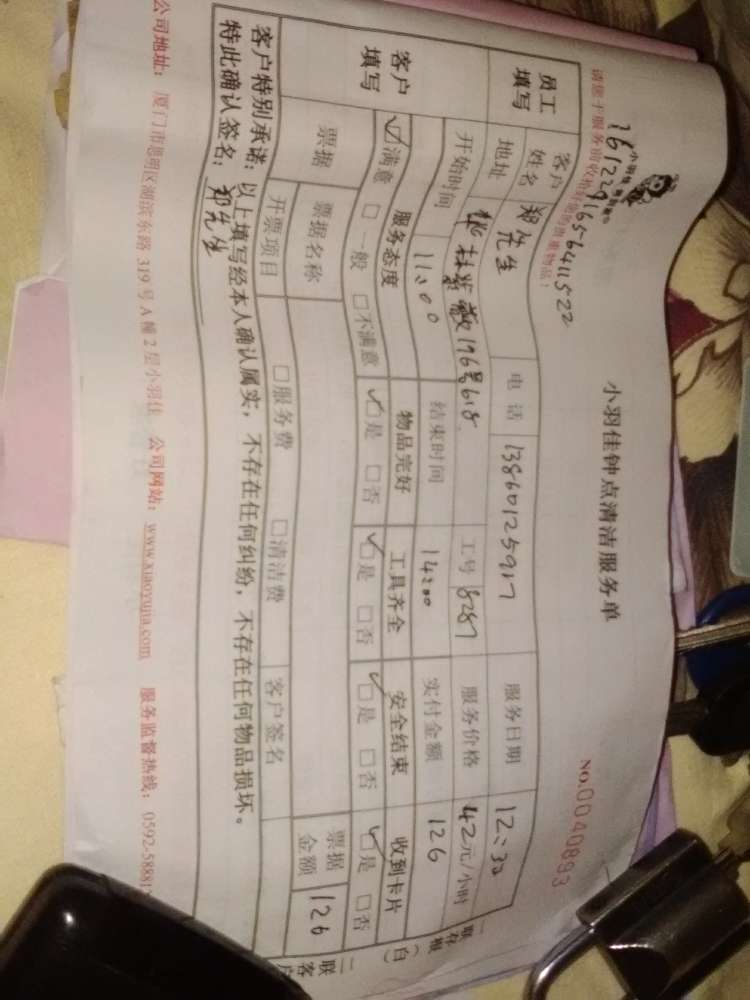 小羽佳钟点清洁服务单
NO.0040893
16122916564115522
员工填写
客户姓名 郑先生 电话 13860125917 服务日期 12:30
地址 176号618 工号 8287 服务价格 42元/小时
客户填写
开始时间 11:00 结束时间 14:00 实付金额 126
服务态度 物品完好 工具齐全 安全结束 收到卡片
☑满意 □一般 □不满意 ☑是 □否 ☑是 □否 ☑是 □否 ☑是 □否
票据 票据名称 票据金额 126
开票项目 □服务费 □清洁费 客户签名
客户特别承诺:以上填写经本人确认属实,不存在任何纠纷,不存在任何物品损坏。
特此确认签名:郑先生
公司地址:厦门市思明区湖滨东路319号A幢2层小羽佳 公司网站:www.xiaoyujia.com 服务监督热线:0592-58881
一联存根(白)
二联客户